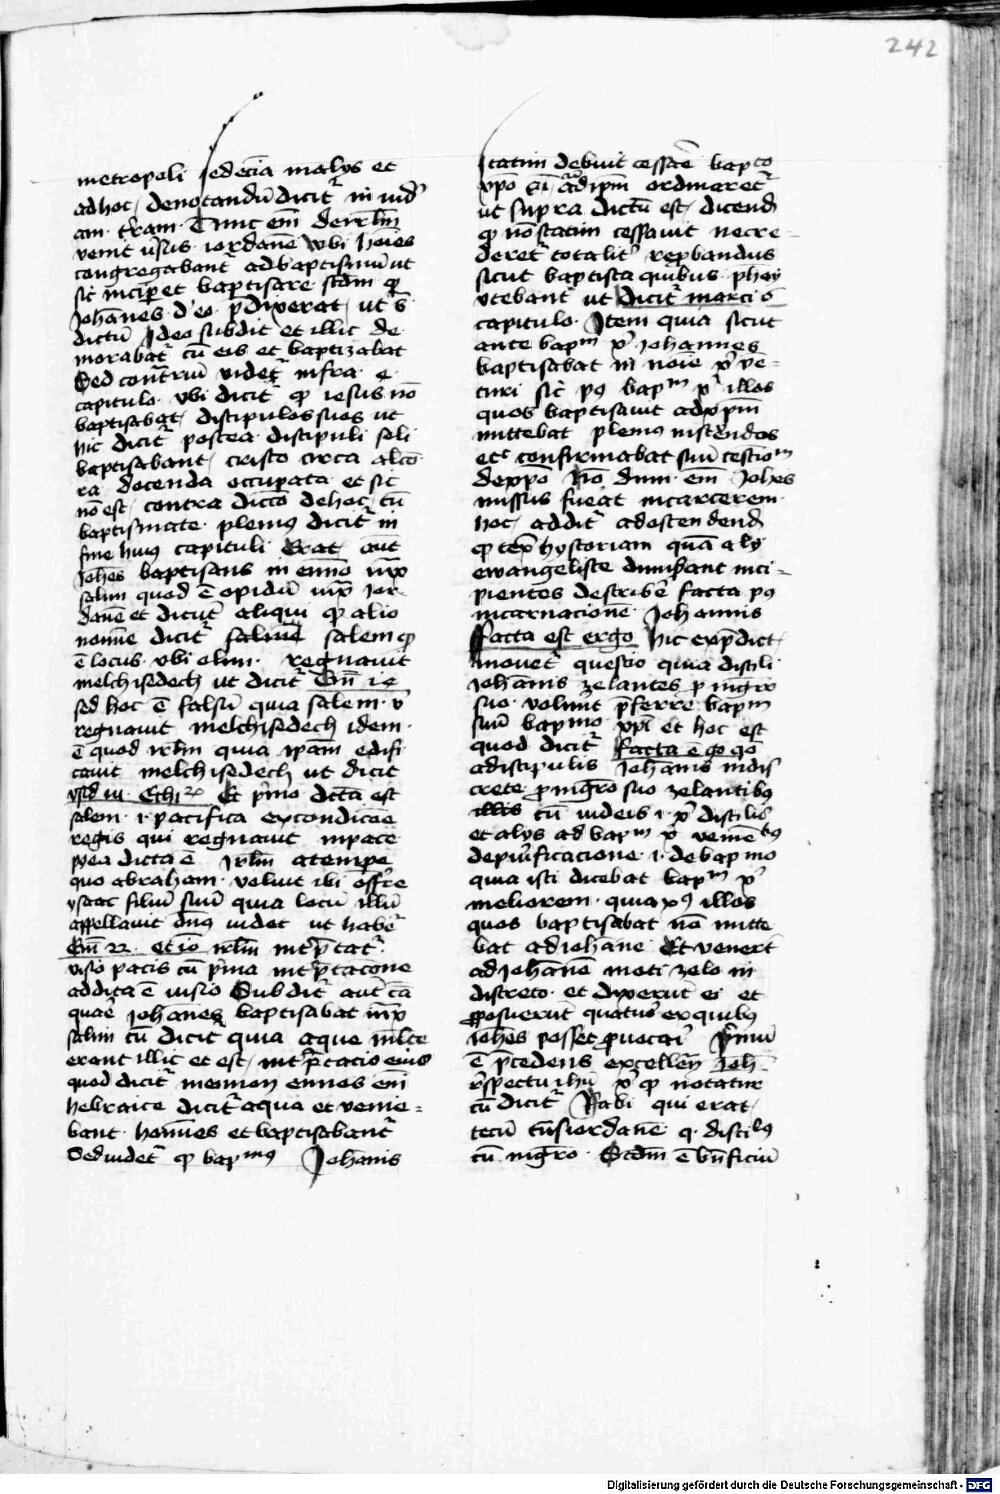 242
metropoli sed etiam in alijs et
ad hoc denotandum dicitr in iud
am t'ram Tunc em de irlm
venit ihsus iordane vbi hoies
congregabant ad baptismu ut
sic incipet baptisare scdm q
Johanes de eo pdixerat ut s
dictu Ideo subdit et illic de
morabatr cu eis et baptizabat
Sed contriu videtr infra 4
capitulo vbi dicitr q iesus no
baptisabat discipulos suos ut
hic dicitr postea discipuli soli
baptisabant cristo circa alcio
ra docenda occupata et sic
no est contra dicto de hoc cu
baptismate plenius dicitr in
fine huius capituli Erat aut
Johes baptisans in ennon iuxta
salim quod e opidu iuxta ior
dane et dicut aliqui q alio
nomine dicitr saline salem q
e locus vbi olim regnauit
melchisedech ut dicitr Gen 14
sed hoc e falsu quia salem v
regnauit melchisedech idem
e quod irlm quia ipam edifi
cauit melchisedech ut dicit
Et pmo dcta est
salem i pacifica ex condicoe
regis qui regnauit in pace
postea dicta e irlm a tempe
quo abraham voluit ibi offre
ysaac filiu suu quia locu illu
appellauit dns videt ut habe
Gen 22 et io irlm intpretatr
visio pacis cu pma intptacone
addita e visio Subditr aute ca
quare Johanes baptisabat iuxta
salim cu dicit quia aque mlte
erant illic et est intptacio eius
quod dicitr ennos em
hebraice dicitr aqua et venie=
bant homines et baptisabantr
Sed videtr q bapmus Johanis
statim debuit cessare bapto
xpo ut supra dictu est dicend
q no statim cessauit ne cre=
deretr totalitr repbandus
sicut baptista quibus
vtebantr ut dicitr marci 6
capitulo Item quia sicut
ante bapm xi Johannes
baptisabat in noie xi ve=
turi sic post bapm xi illos
quos baptisauit ad xpm
mittebat plenius instruendos
etc confirmabat suu testiom
de xpo No dum em Johes
missus fuerat in carcerem
hoc additr ad ostendend
q text hystoriam quam alij
ewangeliste dimiserant inci=
pientes describe facta post
incarnacione Johannis
Facta est ergo hic ex pdict
mouetr questio quia discili
Johannis zelantes p mgro
suo voluut pferre bapm
suu bapmo xpi et hoc est
quod dicitr facta e go qo
a discipulis Johanis indis
crete p mgro suo zelantibus
illis cu iudeis i xi discilis
et alijs ad bapm xi venietibus
de purificacione i de bapmo
quia isti dicebat bapm xi
meliorem quia xpus illos
quos baptisabat no mitte
bat ad iohane Et venert
ad Johanem moti zelo in
discreto et dixerut ei et
pposuerut quatuor ex quibus
iohes posset puocari Primu
e pcedens excellen Joh
respectu ihu xi q notatur
cu dicitr Rabi qui erat
tecu trans iordane q discilus
cu mgro Scdm e bnficiu
Digitalisierung gefördert durch die Deutsche Forschungsgemeinschaft - DFG